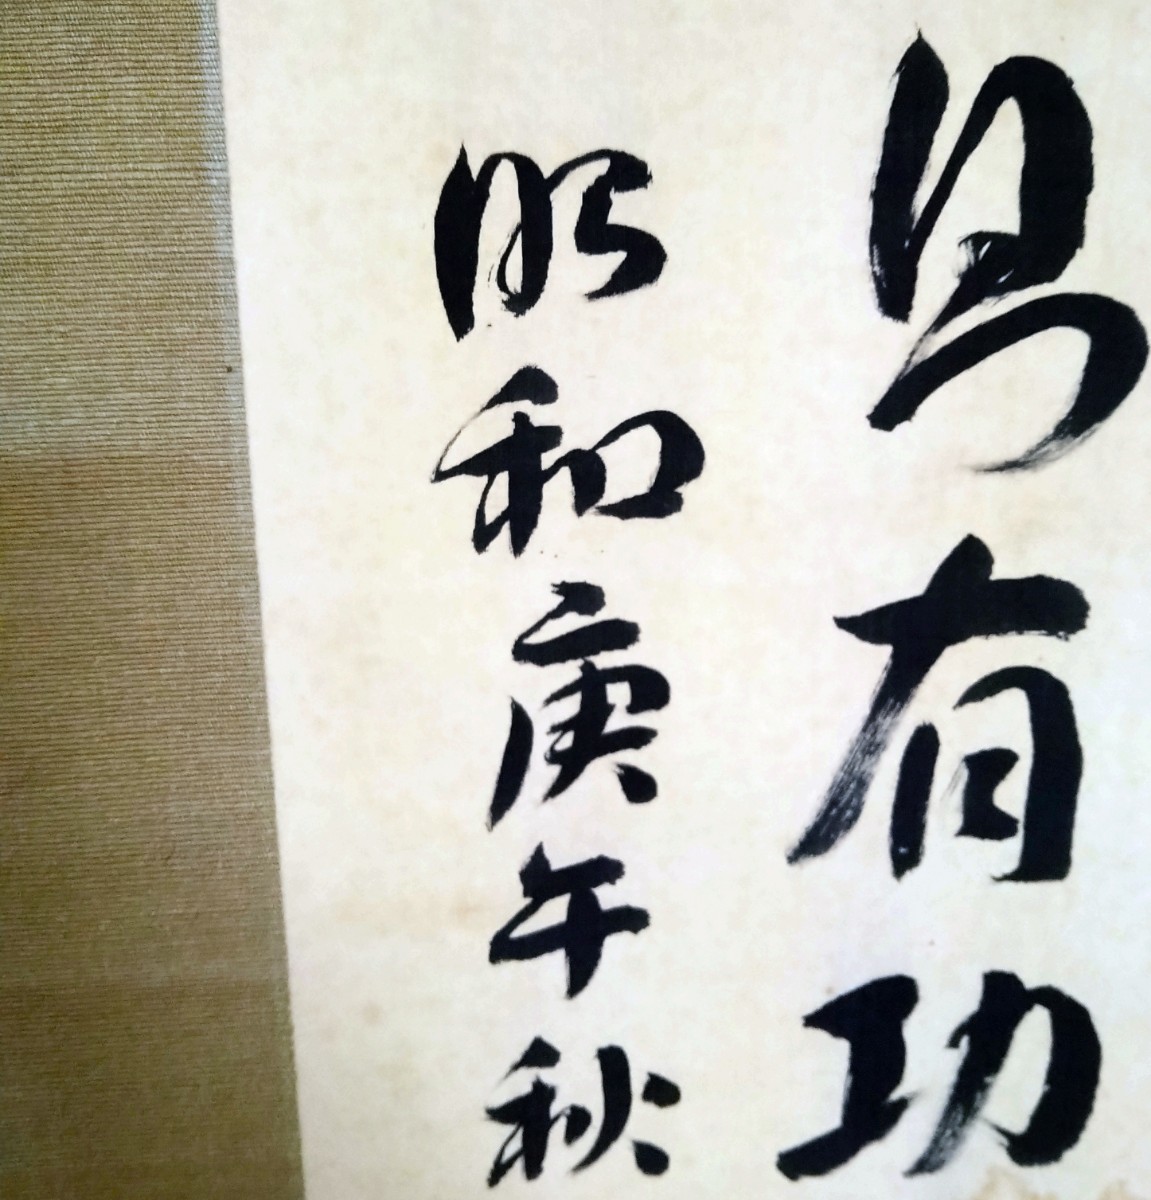 見有功
昭和庚午秋